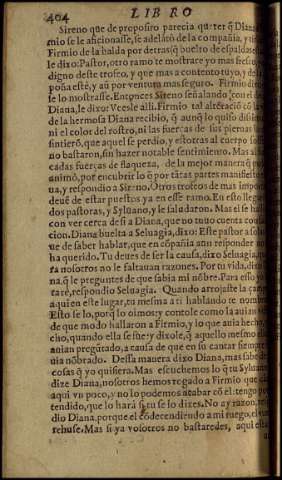 404 LIBRO
Sireno que de proposito parecia querer q̃ Diana
mio se le aficionasse, se adelātó de la compañia, y tirā
Firmio de la halda por detras q̃ buelto de espaldas est
le dixo: Pastor, otro ramo te mostrare yo mas fresco, y
digno deste trofeo, y que mas a contento tuyo, y de la
posa esté, y aũ por ventura mas seguro. Firmio dixo
se lo mostrasse. Entonces Sireno señalando con el dedo
Diana, le dixo: Veesle alli. Firmio tal alteració cō la
de la hermosa Diana recibio, q̃ aunq̃ lo quiso dissimu
ni el color del rostro, ni las fuerças de sus piernas lo
sintierō, que aquel se perdio, y estotras al cuerpo sost
no bastaron, sin hazer notable sentimiento. Mas al
cadas fuerças de flaqueza, de la mejor manera q̃ pu
animó, por encubrir lo q̃ por tātas partes manifiesto
ua, y respondio a Sireno. Otros trofeos de mas impor
deuē de estar puestos ya en esse ramo. En esto llegarō
dos pastoras, y Syluano, y le saludaron. Mas el se halló
con ver cerca de si a Diana, que no tuuo cuenta con
cion. Diana buelta a Seluagia, dixo: Este pastor a solo
ue de saber hablar, que en cōpañia aun responder no
ha querido. Tu deues de ser la causa, dixo Seluagia, que
ra nosotros no le faltauan razones. Por tu vida, dixo
na, q̃ le preguntes de que sabia mi nōbre. Para esso yo
taré, respondio Seluagia. Quando arrojaste la çam
aqui en este lugar, tu mesma a ti hablando te nombra
Esto se lo, porq̃ lo oimos: y contole como la auian vis
de que modo hallaron a Firmio, y lo que auia hecho,
cho, quando ella se fue: y dixole, q̃ aquello mesmo el
auian preguntado, a causa de que en su cantar siempre
uia nōbrado. Dessa manera dixo Diana, mas sabe de
cosas q̃ yo quisiera. Mas escuchemos lo q̃ tu Syluano
dize Diana, nosotros hemos rogado a Firmio que cā
aqui vn poco, y no lo podemos acabar cō el: tengo por
tendido, que lo hará si tu se lo dizes. No ay razon, res
dio Diana, porque el cōdecendiendo a mi ruego, el vu
rehuse. Mas si ya vosotros no bastaredes, aqui esta